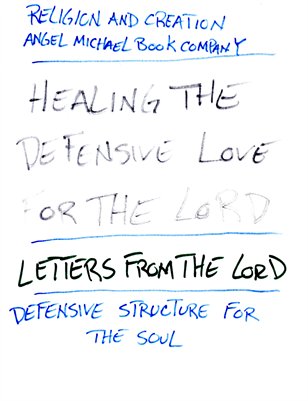 RELIGION AND CREATION
ANGEL MICHAEL BOOK COMPANY
HEALING THE
DEFENSIVE LOVE
FOR THE LORD
LETTERS FROM THE LORD
DEFENSIVE STRUCTURE FOR
THE SOUL